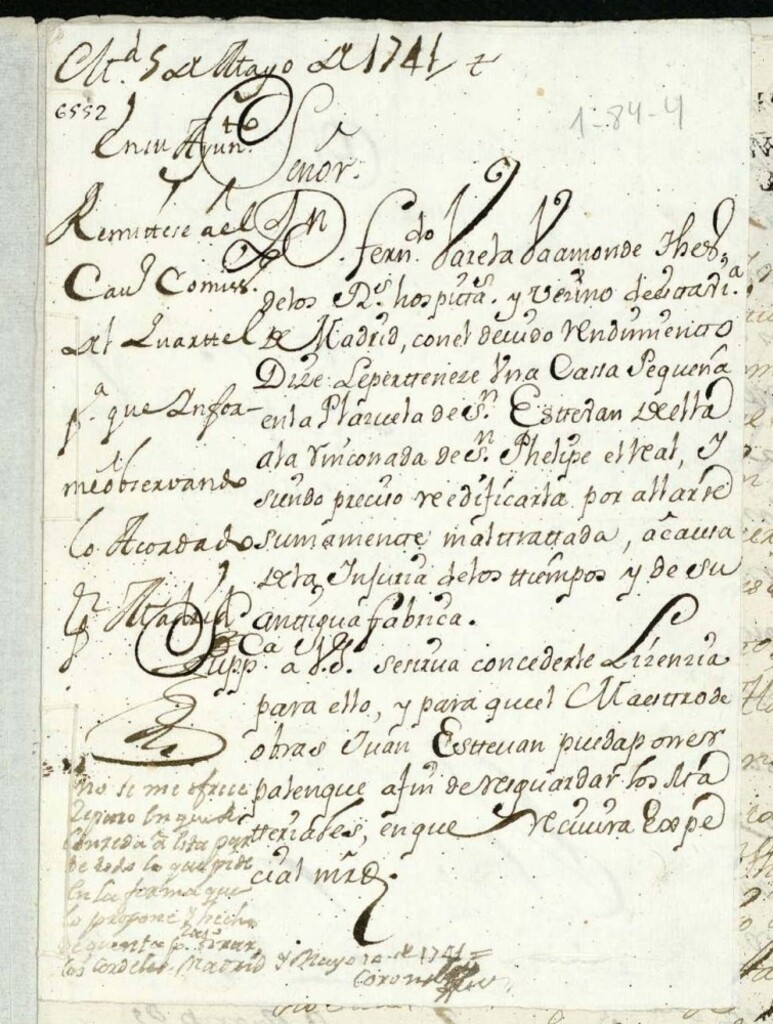 M.d 5 de Mayo de 1741
6552
1-84-4
En su Ayunt.to
Remittese a el
Cavl Comiss.
del Quarttel
p.a que Infor-
me observando
lo Acordado
Madrid
Señor.
Dn. Fern.do Varela Vaamonde Thes.
de los R.s hospitta.s y vezino de esta
de Madrid, con el devido rendimiento
Dize Lepertteneze Una Cassa Pequeña
en la Plazuela de S.n Estevan
a la rinconada de S.n Phelipe el real, Y
siendo preciso reedificarla por allarse
sumamente malttrattada, a causa
de la Injuria de los ttiempos y de su
antigua fabrica.
Supp.ca a V.S. se sirva concederle Lizenzia
para ello, y para que el Maestro de
obras Juan Esttevan pueda poner
palenque a fin de resguardar los Ma
tteriales, en que recivira Expe
cial mrd.
No se me ofrece
reparo en que se
conzeda a esta par
te todo lo que pide
en la forma que
lo propone
de quenta p.a tirar
los cordeles. Madrid y Mayo de 1741=